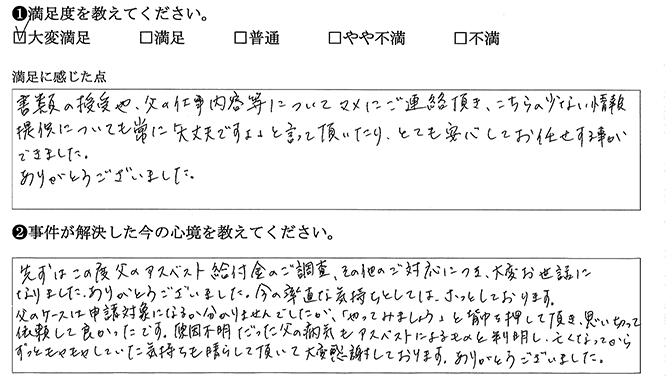 ❶満足度を教えてください。
☑大変満足 □満足 □普通 □やや不満 □不満
満足に感じた点
書類の授受や、父の仕事内容等についてマメにご連絡頂き、こちらの少ない情報
提供についても常に「大丈夫ですよ」と言って頂いたり、とても安心してお任せする事が
できました。
ありがとうございました。
❷事件が解決した今の心境を教えてください。
先ずはこの度父のアスベスト給付金のご調査、その他のご対応につき、大変お世話に
なりました。ありがとうございました。今の率直な気持ちとしては、ホッとしております。
父のケースは申請対象になるか分かりませんでしたが、「やってみましょう」と背中を押して頂き、思いきって
依頼して良かったです。原因不明だった父の病気もアスベストによるものと判明し、亡くなってから
ずっとモヤモヤしていた気持ちも晴らして頂いて大変感謝しております。ありがとうございました。